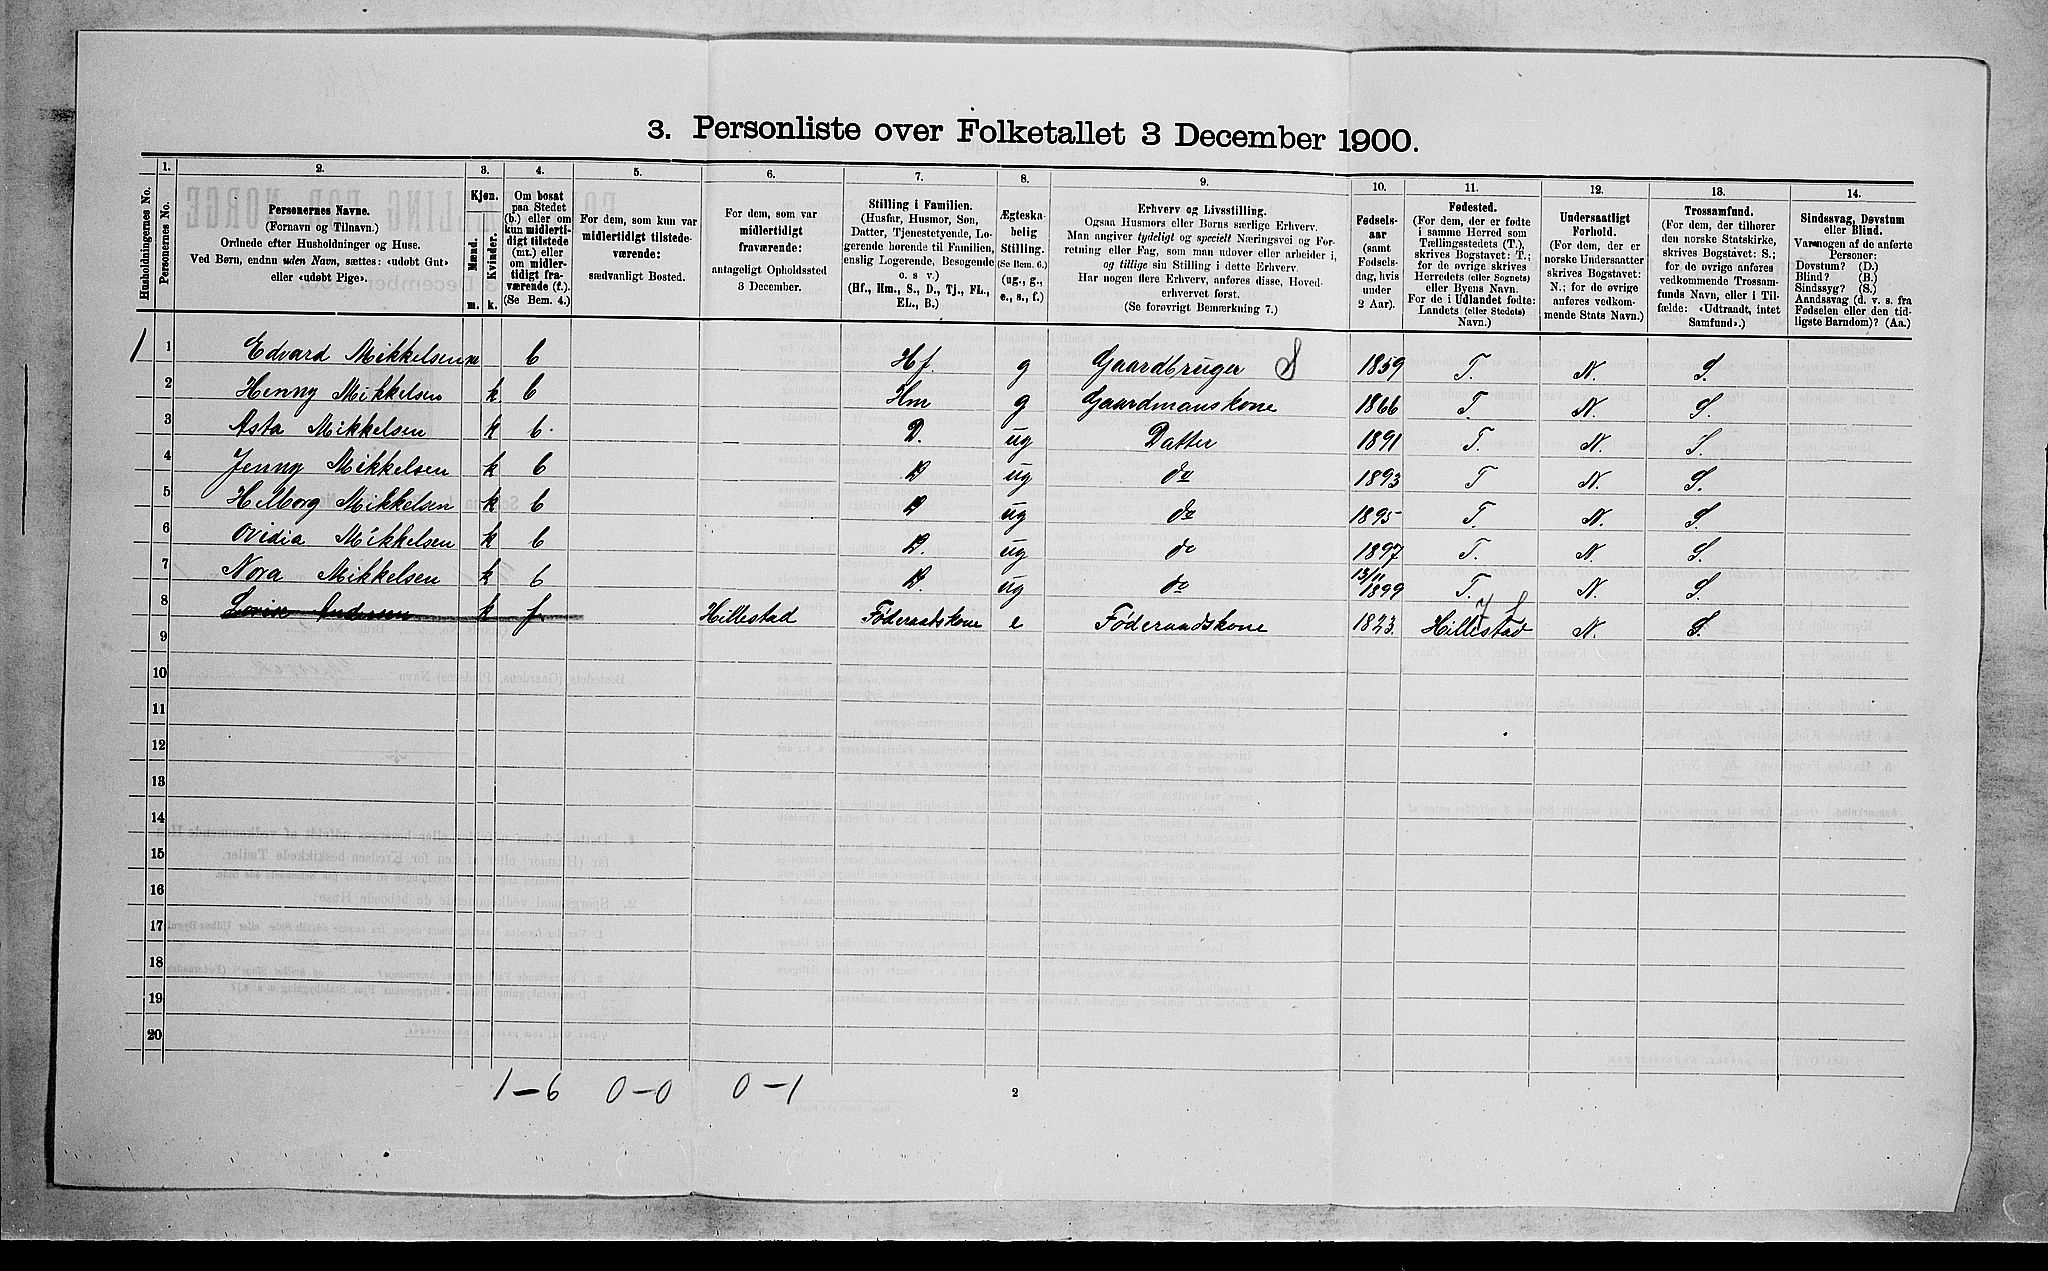 3. Personliste over Folketallet 3 December 1900.
Husholdningernes No.
1.
Personernes No.
2.
Personernes Navne.
(Fornavn og Tilnavn.)
Ordnede efter Husholdninger og Huse.
Ved Børn, endnu uden Navn, sættes: «udøbt Gut»
eller «udøbt Pige».
3.
Kjøn.
Mænd.
Kvinder.
m. k.
4.
Om bosat
paa Stedet
(b.) eller om
kun midlerti-
digt tilstede
(mt.) eller
om midler-
tidigt fra-
værende (f.).
(Se Bem. 4.)
5.
For dem, som kun var
midlertidigt tilstede-
værende:
sædvanligt Bosted.
6.
For dem, som var
midlertidigt
fraværende:
antageligt Opholdssted
3 December.
7.
Stilling i Familien.
(Husfar, Husmor, Søn,
Datter, Tjenestetyende, Lo-
gerende hørende til Familien,
enslig Logerende, Besøgende
o. s v.)
(Hf., Hm., S., D., Tj., FL.,
EL., B.)
8.
Ægteska-
belig
Stilling.
(Se Bem. 6.)
(ug., g.,
e., s., f.)
9.
Erhverv og Livsstilling.
Ogsaa Husmors eller Børns særlige Erhverv.
Man angiver tydeligt og specielt Næringsvei og For-
retning eller Fag, som man udøver eller arbeider i,
og tillige sin Stilling i dette Erhverv.
Har nogen flere Erhverv, anføres disse, Hoved-
erhvervet først.
(Se forøvrigt Bemærkning 7.)
10.
Fødsels-
aar
(samt
Fødsels-
dag, hvis
under
2 Aar).
11.
Fødested.
(For dem, der er fødte
i samme Herred som
Tællingsstedets (T.),
skrives Bogstavet: T.;
for de øvrige skrives
Herredets (eller Sognets)
eller Byens Navn.
For de i Udlandet fødte:
Landets (eller Stedets)
Navn.)
12.
Undersaatligt
Forhold.
(For dem, der er
norske Undersaatter
skrives Bogstavet:
N.; for de øvrige
anføres vedkom-
mende Stats Navn.)
13.
Trossamfund.
(For dem, der tilhører
den norske Statskirke,
skrives Bogstavet: S.;
for de øvrige anføres
vedkommende Trossam-
funds Navn, eller i Til-
fælde: «Udtraadt, intet
Samfund».)
14.
Sindssvag, Døvstum
eller Blind.
Var nogen af de anførte
Personer:
Døvstum? (D.)
Blind? (B.)
Sindssyg? (S.)
Aandssvag (d. v. s. fra
Fødselen eller den tid-
ligste Barndom)? (Aa.)
1 1 Edvard Mikkelsen m b Hf. g Gaardbruger S 1859 T. N. S.
2 Henny Mikkelsen k b Hm g Gaardmanskone 1866 T. N. S.
3 Asta Mikkelsen k b. D. ug Datter 1891 T. N. S.
4 Jenny Mikkelsen k b D ug do 1893 T N. S.
5 Helborg Mikkelsen k b D ug do 1895 T. N. S.
6 Ovidia Mikkelsen k b D. ug do 1897 T. N. S.
7 Nora Mikkelsen k b D. ug do 13/11 1899 T. N. S.
8 Lovise Andersen k f Hillestad Føderaadskone e Føderaadskone 1823 Hillestad N. S.
9
10
11
12
13
14
15
16
17
18
19
20
1-6 0-0 0-1
2